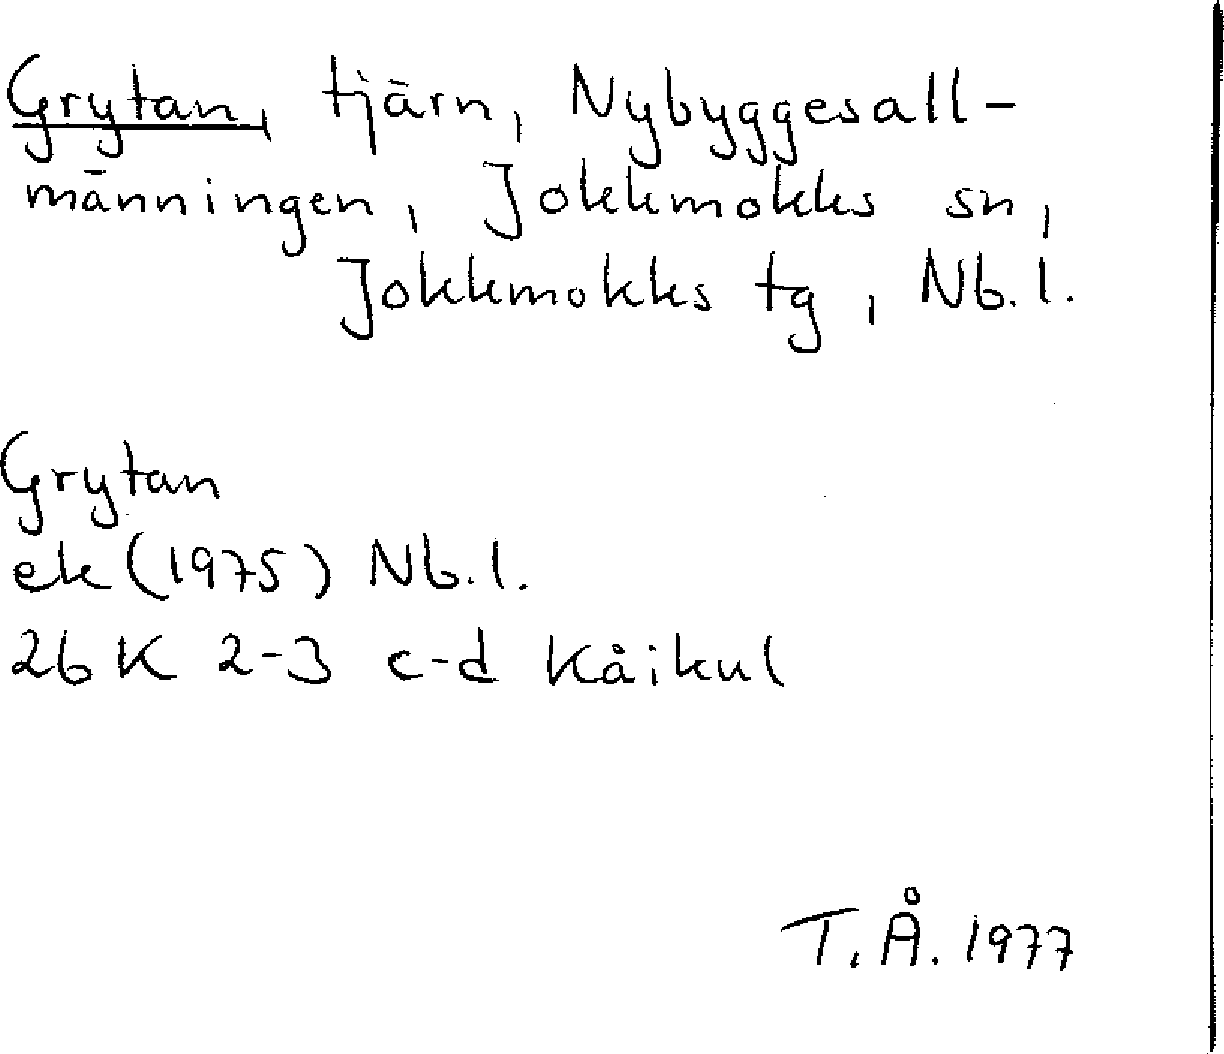 Grytan, tjärn, Nybyggesall-
männingen, Jokkmokks sn,
Jokkmokks tg, Nb.l.
Grytan
ek (1975) Nb.l.
26 K 2-3 c-d Kåikul
T.Å. 1977